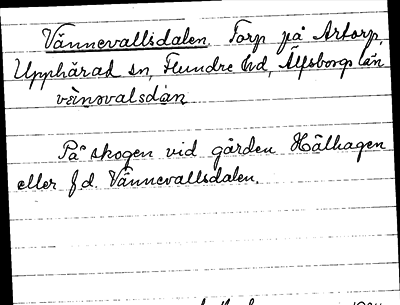 Vännevallsdalen, Torp på Artorp,
Upphärad sn, Flundre hd, Älfsborgs län
vä̀nəvalsdàn
På skogen vid gården Hålhagen
eller f.d. Vännevallsdalen.